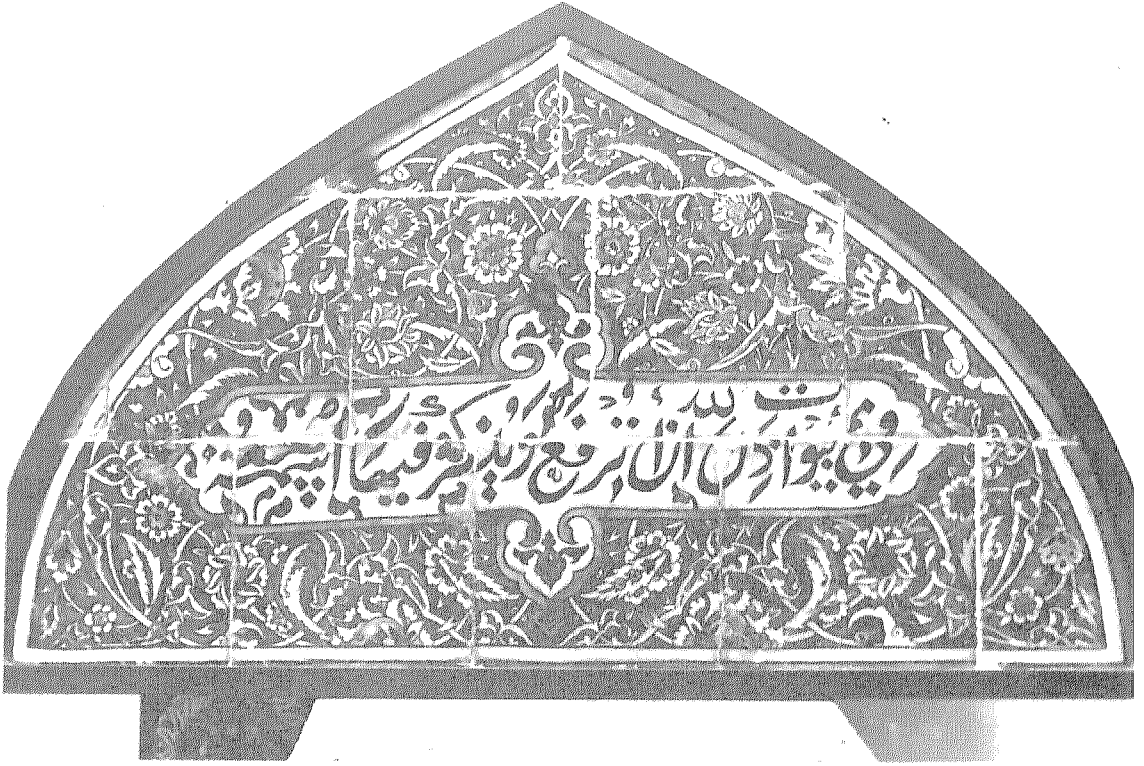 في بيوت اذن الله ان ترفع ويذكر فيها اسمه